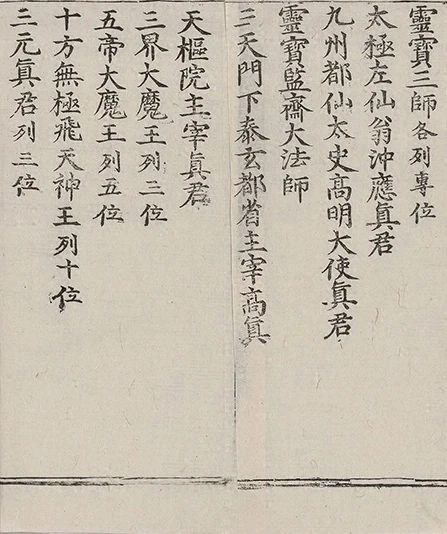 靈寶三師各列專位
太極左仙翁沖應真君
九州都仙太史高明大使真君
靈寶監齋大法師
三天門下泰玄都省主宰高真
天樞院主宰真君
三界大魔王列三位
五帝大魔王列五位
十方無極飛天神王列十位
三元真君列三位